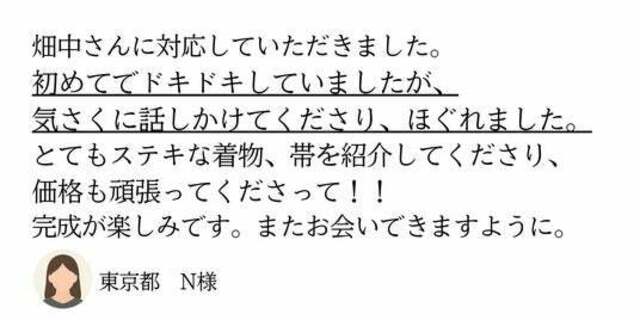 畑中さんに対応していただきました。
初めてでドキドキしていましたが、
気さくに話しかけてくださり、ほぐれました。
とてもステキな着物、帯を紹介してくださり、
価格も頑張ってくださって！！
完成が楽しみです。またお会いできますように。
東京都　N様